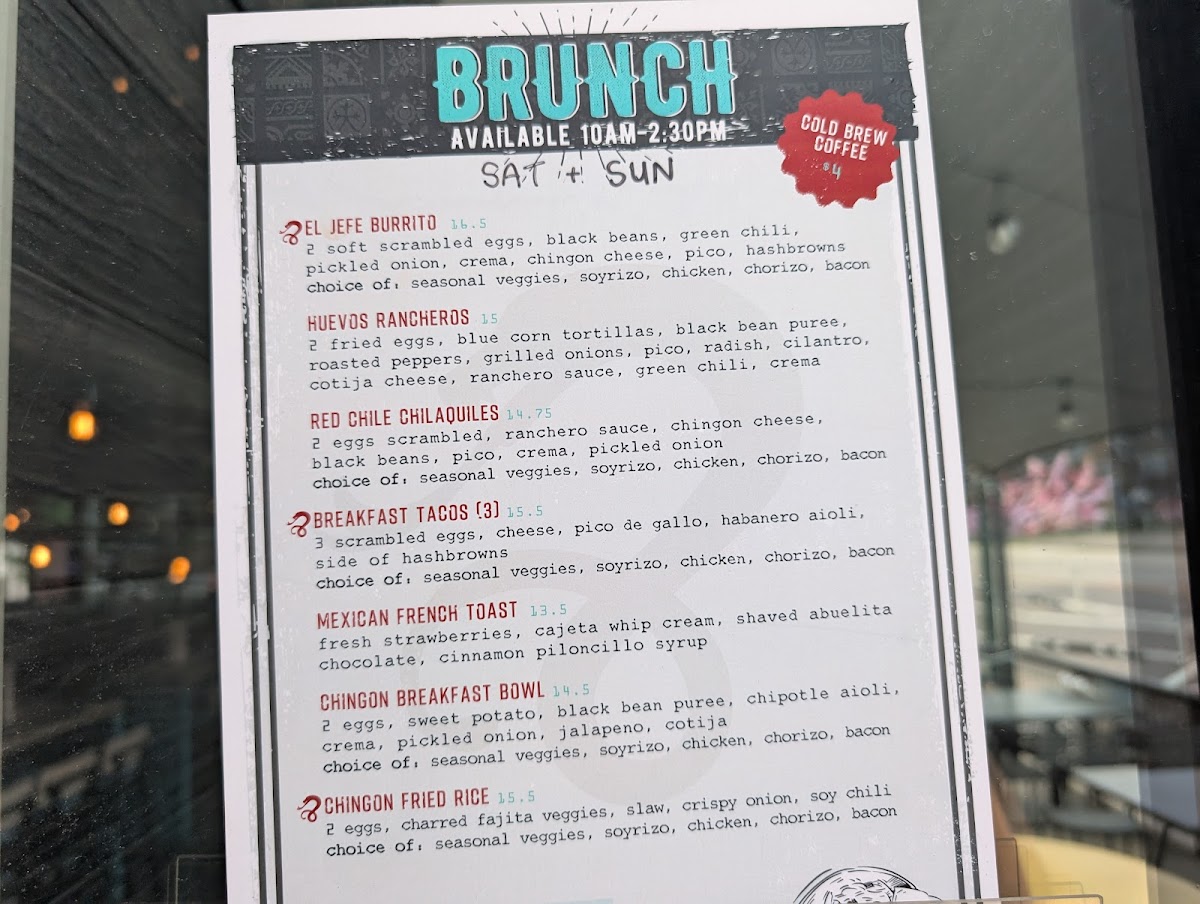 BRUNCH
AVAILABLE 10AM-2:30PM
SAT + SUN
COLD BREW
COFFEE
$4
EL JEFE BURRITO 16.5
2 soft scrambled eggs, black beans, green chili,
pickled onion, crema, chingon cheese, pico, hashbrowns
choice of: seasonal veggies, soyrizo, chicken, chorizo, bacon
HUEVOS RANCHEROS 15
2 fried eggs, blue corn tortillas, black bean puree,
roasted peppers, grilled onions, pico, radish, cilantro,
cotija cheese, ranchero sauce, green chili, crema
RED CHILE CHILAQUILES 14.75
2 eggs scrambled, ranchero sauce, chingon cheese,
black beans, pico, crema, pickled onion
choice of: seasonal veggies, soyrizo, chicken, chorizo, bacon
BREAKFAST TACOS (3) 15.5
3 scrambled eggs, cheese, pico de gallo, habanero aioli,
side of hashbrowns
choice of: seasonal veggies, soyrizo, chicken, chorizo, bacon
MEXICAN FRENCH TOAST 13.5
fresh strawberries, cajeta whip cream, shaved abuelita
chocolate, cinnamon piloncillo syrup
CHINGON BREAKFAST BOWL 14.5
2 eggs, sweet potato, black bean puree, chipotle aioli,
crema, pickled onion, jalapeno, cotija
choice of: seasonal veggies, soyrizo, chicken, chorizo, bacon
CHINGON FRIED RICE 15.5
2 eggs, charred fajita veggies, slaw, crispy onion, soy chili
choice of: seasonal veggies, soyrizo, chicken, chorizo, bacon